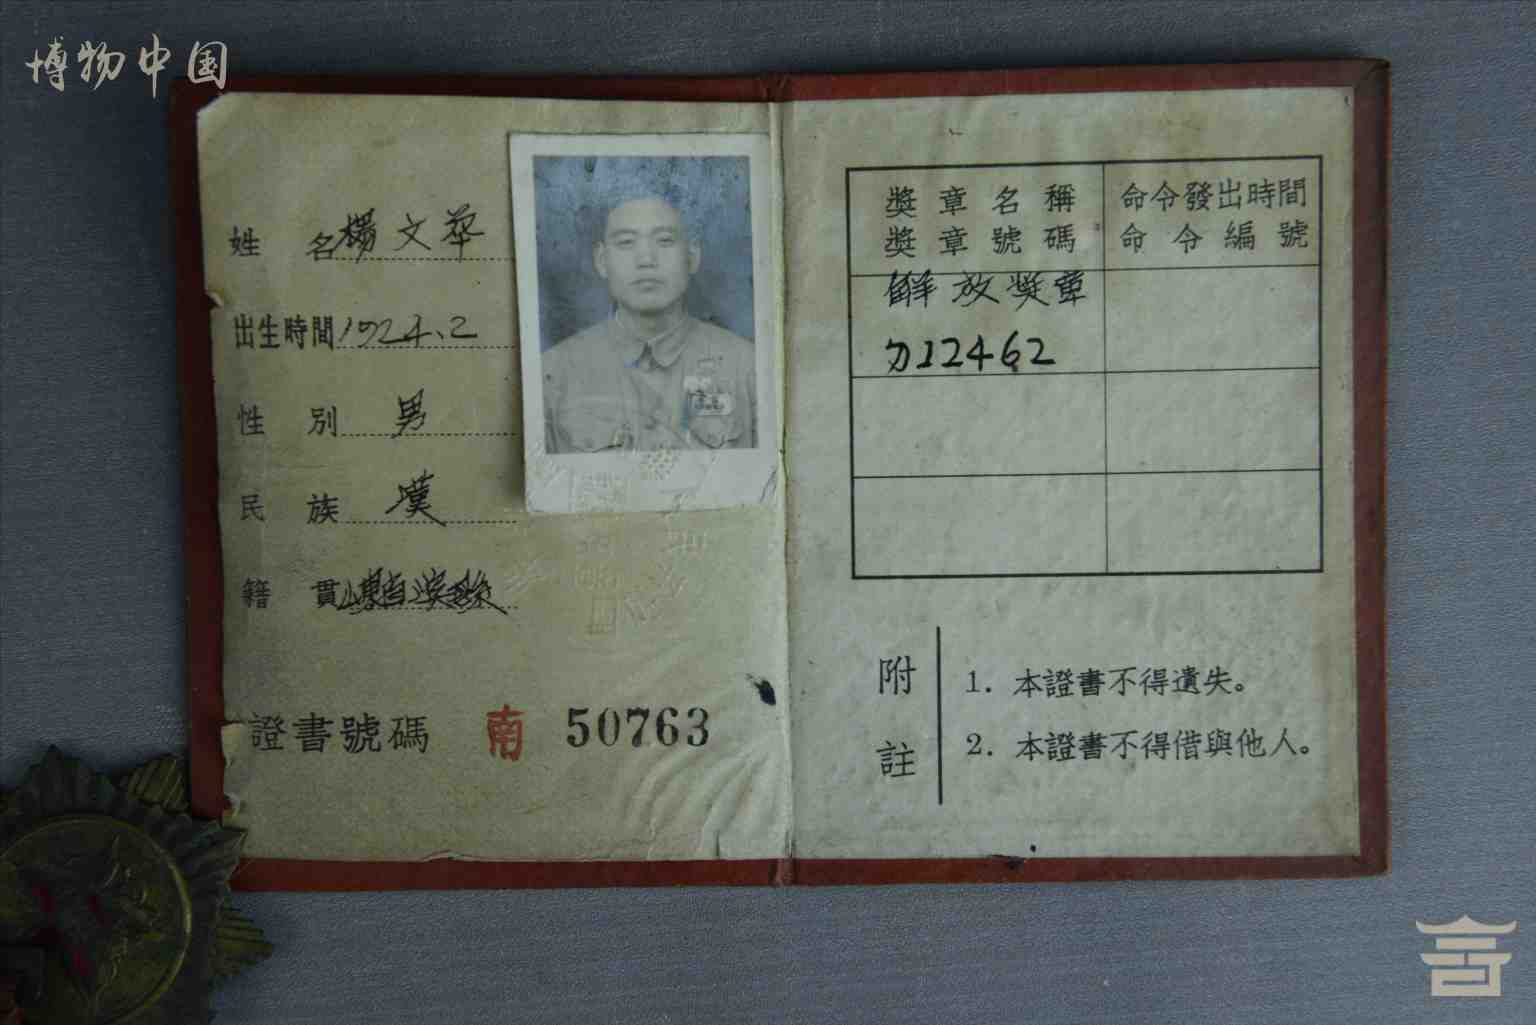 博物中国
姓 名 楊文華
出生時間 1924.2
性 別 男
民 族 漢
籍 貫
證書號碼 南 50763
獎章名稱
獎章號碼
命令發出時間
命令編號
解放獎章
12462
附註
1. 本證書不得遺失。
2. 本證書不得借與他人。